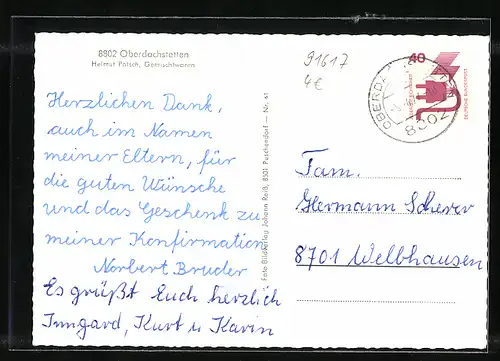 8802 Oberdachstetten
Helmut Potsch, Gemischtwaren
91617
4€
40
DEUTSCHE BUNDESPOST
8802
Herzlichen Dank,
auch im Namen
meiner Eltern, für
die guten Wünsche
und das Geschenk zu
meiner Konfirmation
Norbert Bruder
Es grüßt Euch herzlich
Irmgard, Kurt u Karin
Foto Bildverlag Johann Reiß, 8501 Puschendorf — Nr. 41
Fam.
Hermann Scherer
8701 Welbhausen